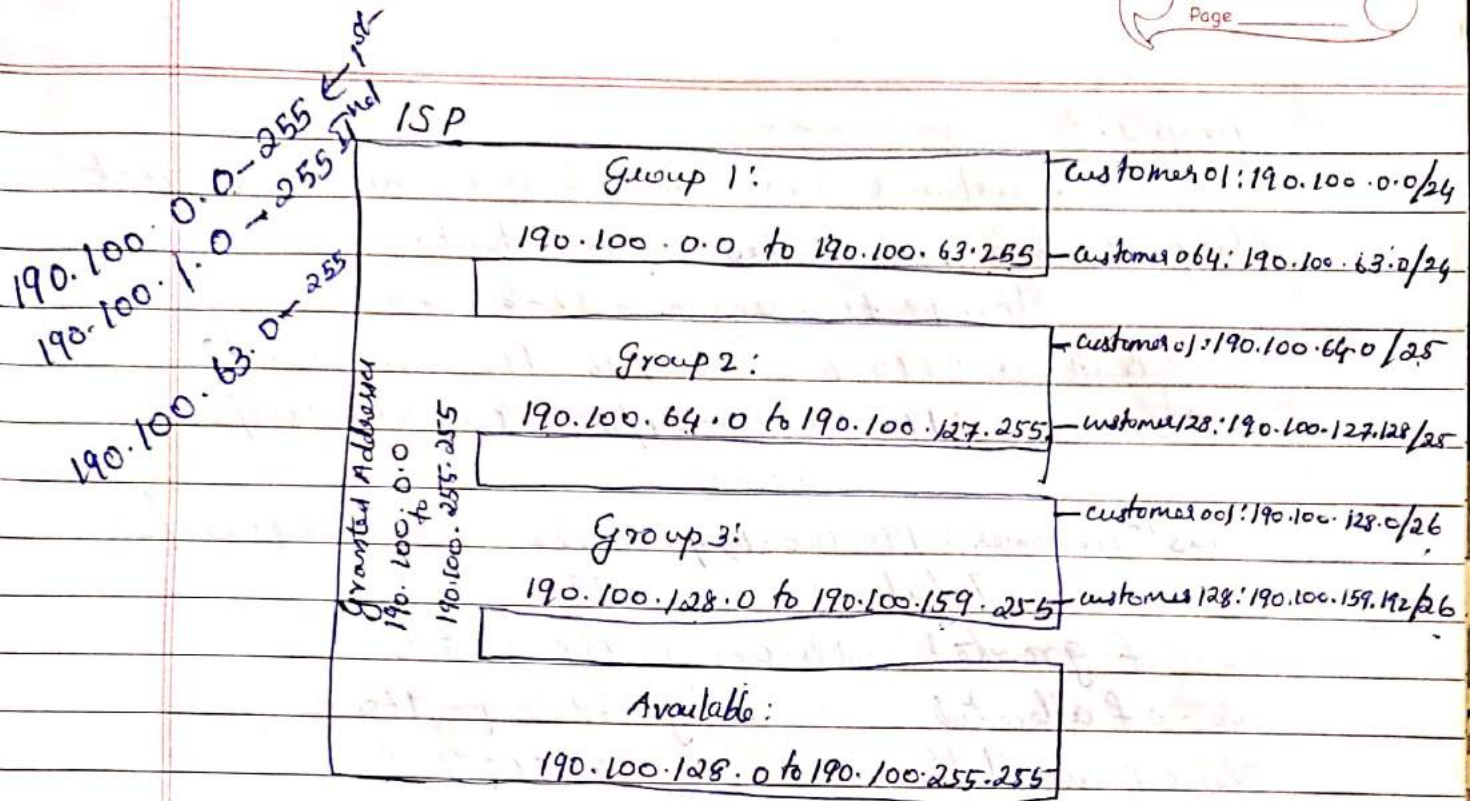 Page
190.100.0.0-255 ← 1st
190.100.1.0-255 IInd
190.100.63.0-255
ISP
Granted Addresses
190.100.0.0
to
190.100.255.255
Group 1:
190.100.0.0 to 190.100.63.255
customer 01: 190.100.0.0/24
customer 064: 190.100.63.0/24
Group 2:
190.100.64.0 to 190.100.127.255
customer 01: 190.100.64.0/25
customer 128: 190.100.127.128/25
Group 3:
190.100.128.0 to 190.100.159.255
customer 001: 190.100.128.0/26
customer 128: 190.100.159.192/26
Available:
190.100.128.0 to 190.100.255.255